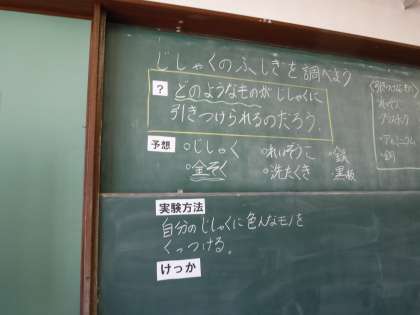 じしゃくのふしぎを調べよう
?
どのようなものがじしゃくに
引きつけられるのだろう。
予想
○じしゃく ○れいぞうこ ・鉄
○金ぞく ○洗たくき ・黒板
・アルミニウム
・銅
実験方法
自分のじしゃくに色んなモノを
くっつける。
けっか